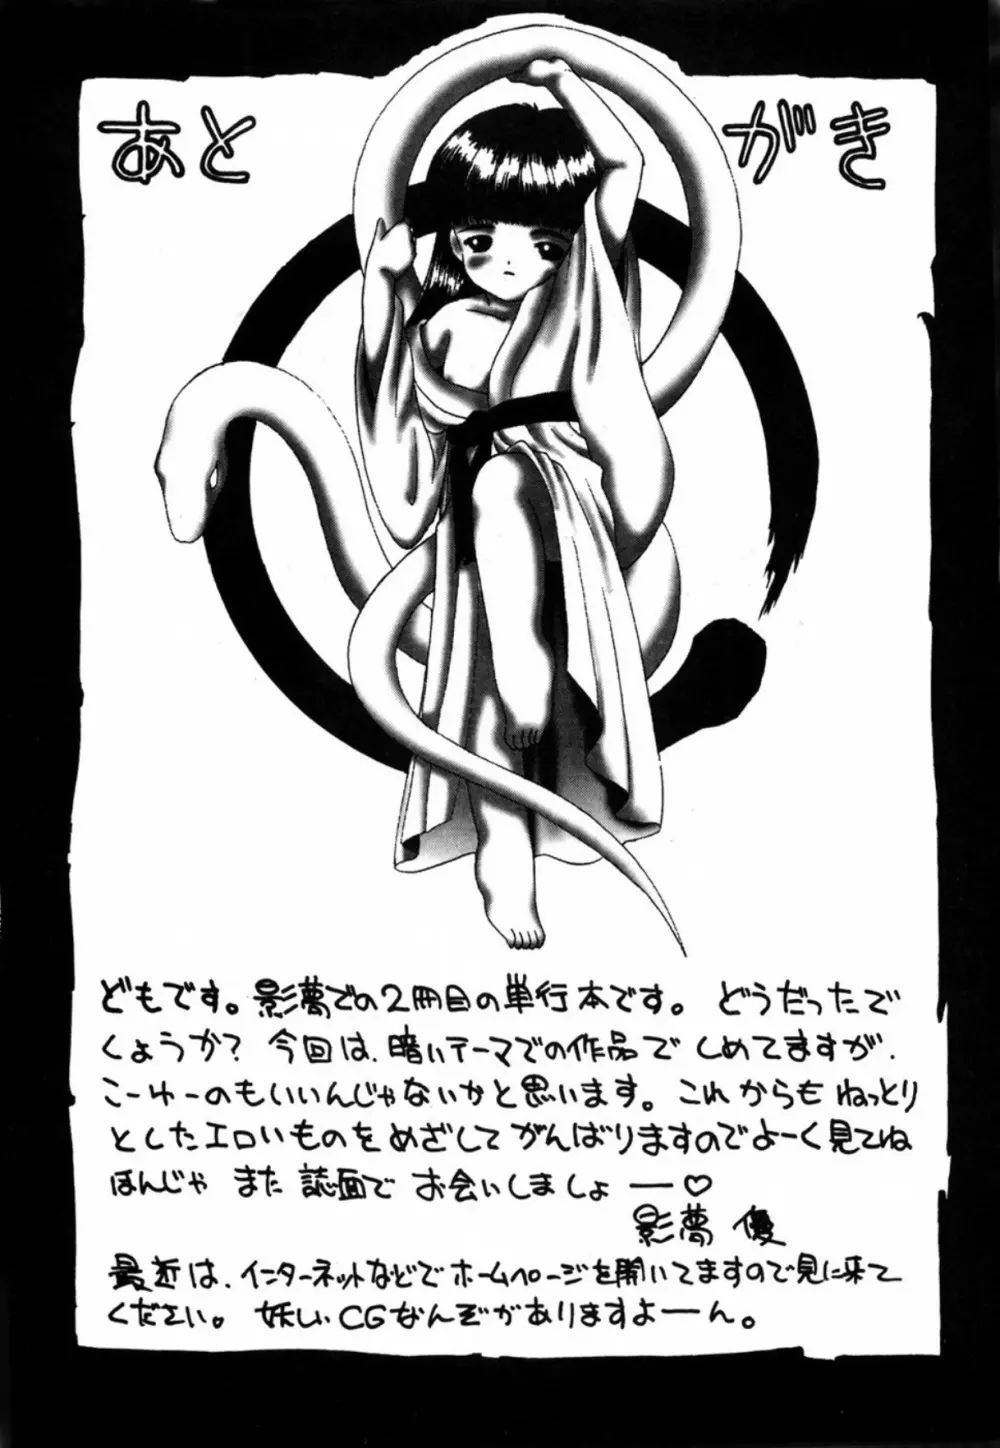 あとがき
どもです。影夢での2冊目の単行本です。どうだったで
くょうか？今回は、暗いテーマでの作品でしめてますが、
こーゆーのもいいんじゃないかと思います。これからもねっとり
としたエロいものをめざしてがんばりますのでよーく見てね
ほんじゃまた誌面でお会いしましょー♡
影夢 優
最近は、インターネットなどでホームページを開いてますので見に来て
ください。妖しいCGなんぞがありますよーん。